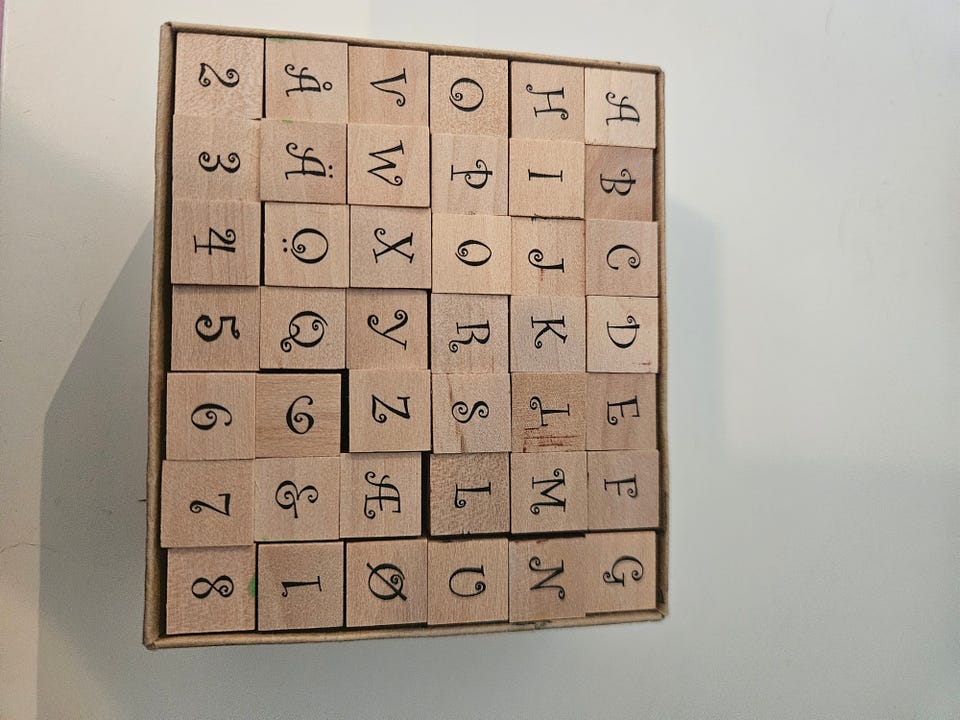 A B C D E F G
H I J K T M N
O P 0 R S L U
V W X Y Z Æ Ø
Å Ä Ö Q 9 & 1
2 3 4 5 6 7 8